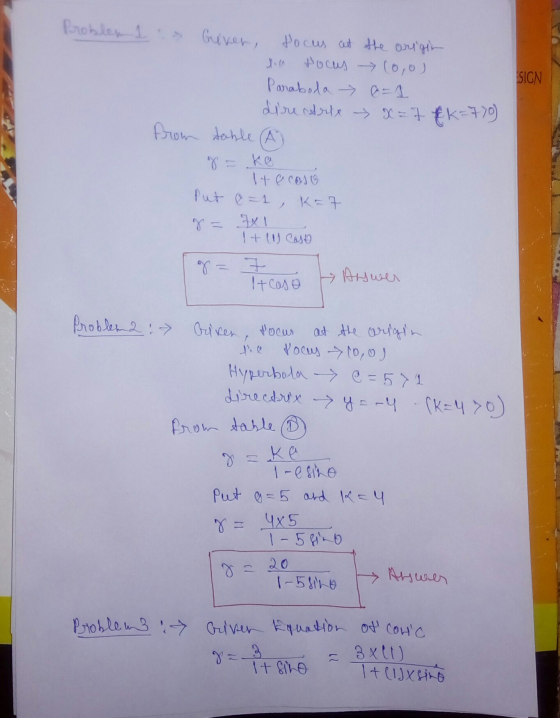 Problem 1 :→ Given, focus at the origin
i.e focus → (0,0)
SIGN
Parabola → e=1
directrix → x=7 (K=7>0)
From table (A)
r = Ke / 1+e cosθ
Put e=1, K=7
r = 7×1 / 1+(1) cosθ
r = 7 / 1+cosθ → Answer
Problem 2 :→ Given, focus at the origin
i.e focus → (0,0)
Hyperbola → e=5>1
directrix → y=-4 . (K=4>0)
From table (D)
r = Ke / 1-e sinθ
Put e=5 and K=4
r = 4×5 / 1-5 sinθ
r = 20 / 1-5 sinθ → Answer
Problem 3 :→ Given Equation of conic
r = 3 / 1+sinθ = 3×(1) / 1+(1)×sinθ